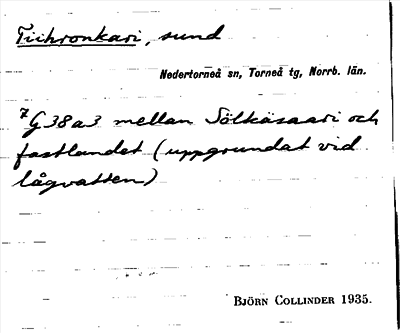 Tiihronkari, sund
Nedertorneå sn, Torneå tg, Norrb. län.
7G38a3 mellan Sölkäsaari och
fastlandet (uppgrundat vid
lågvatten)
BJÖRN COLLINDER 1935.